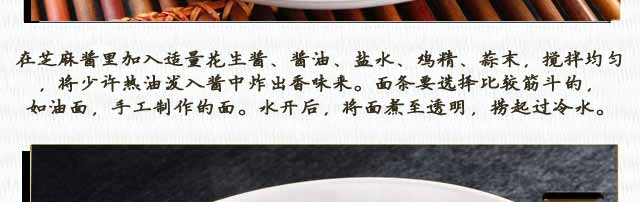 在芝麻酱里加入适量花生酱、酱油、盐水、鸡精、蒜末，搅拌均匀
，将少许热油泼入酱中炸出香味来。面条要选择比较筋斗的，
如油面，手工制作的面。水开后，将面煮至透明，捞起过冷水。